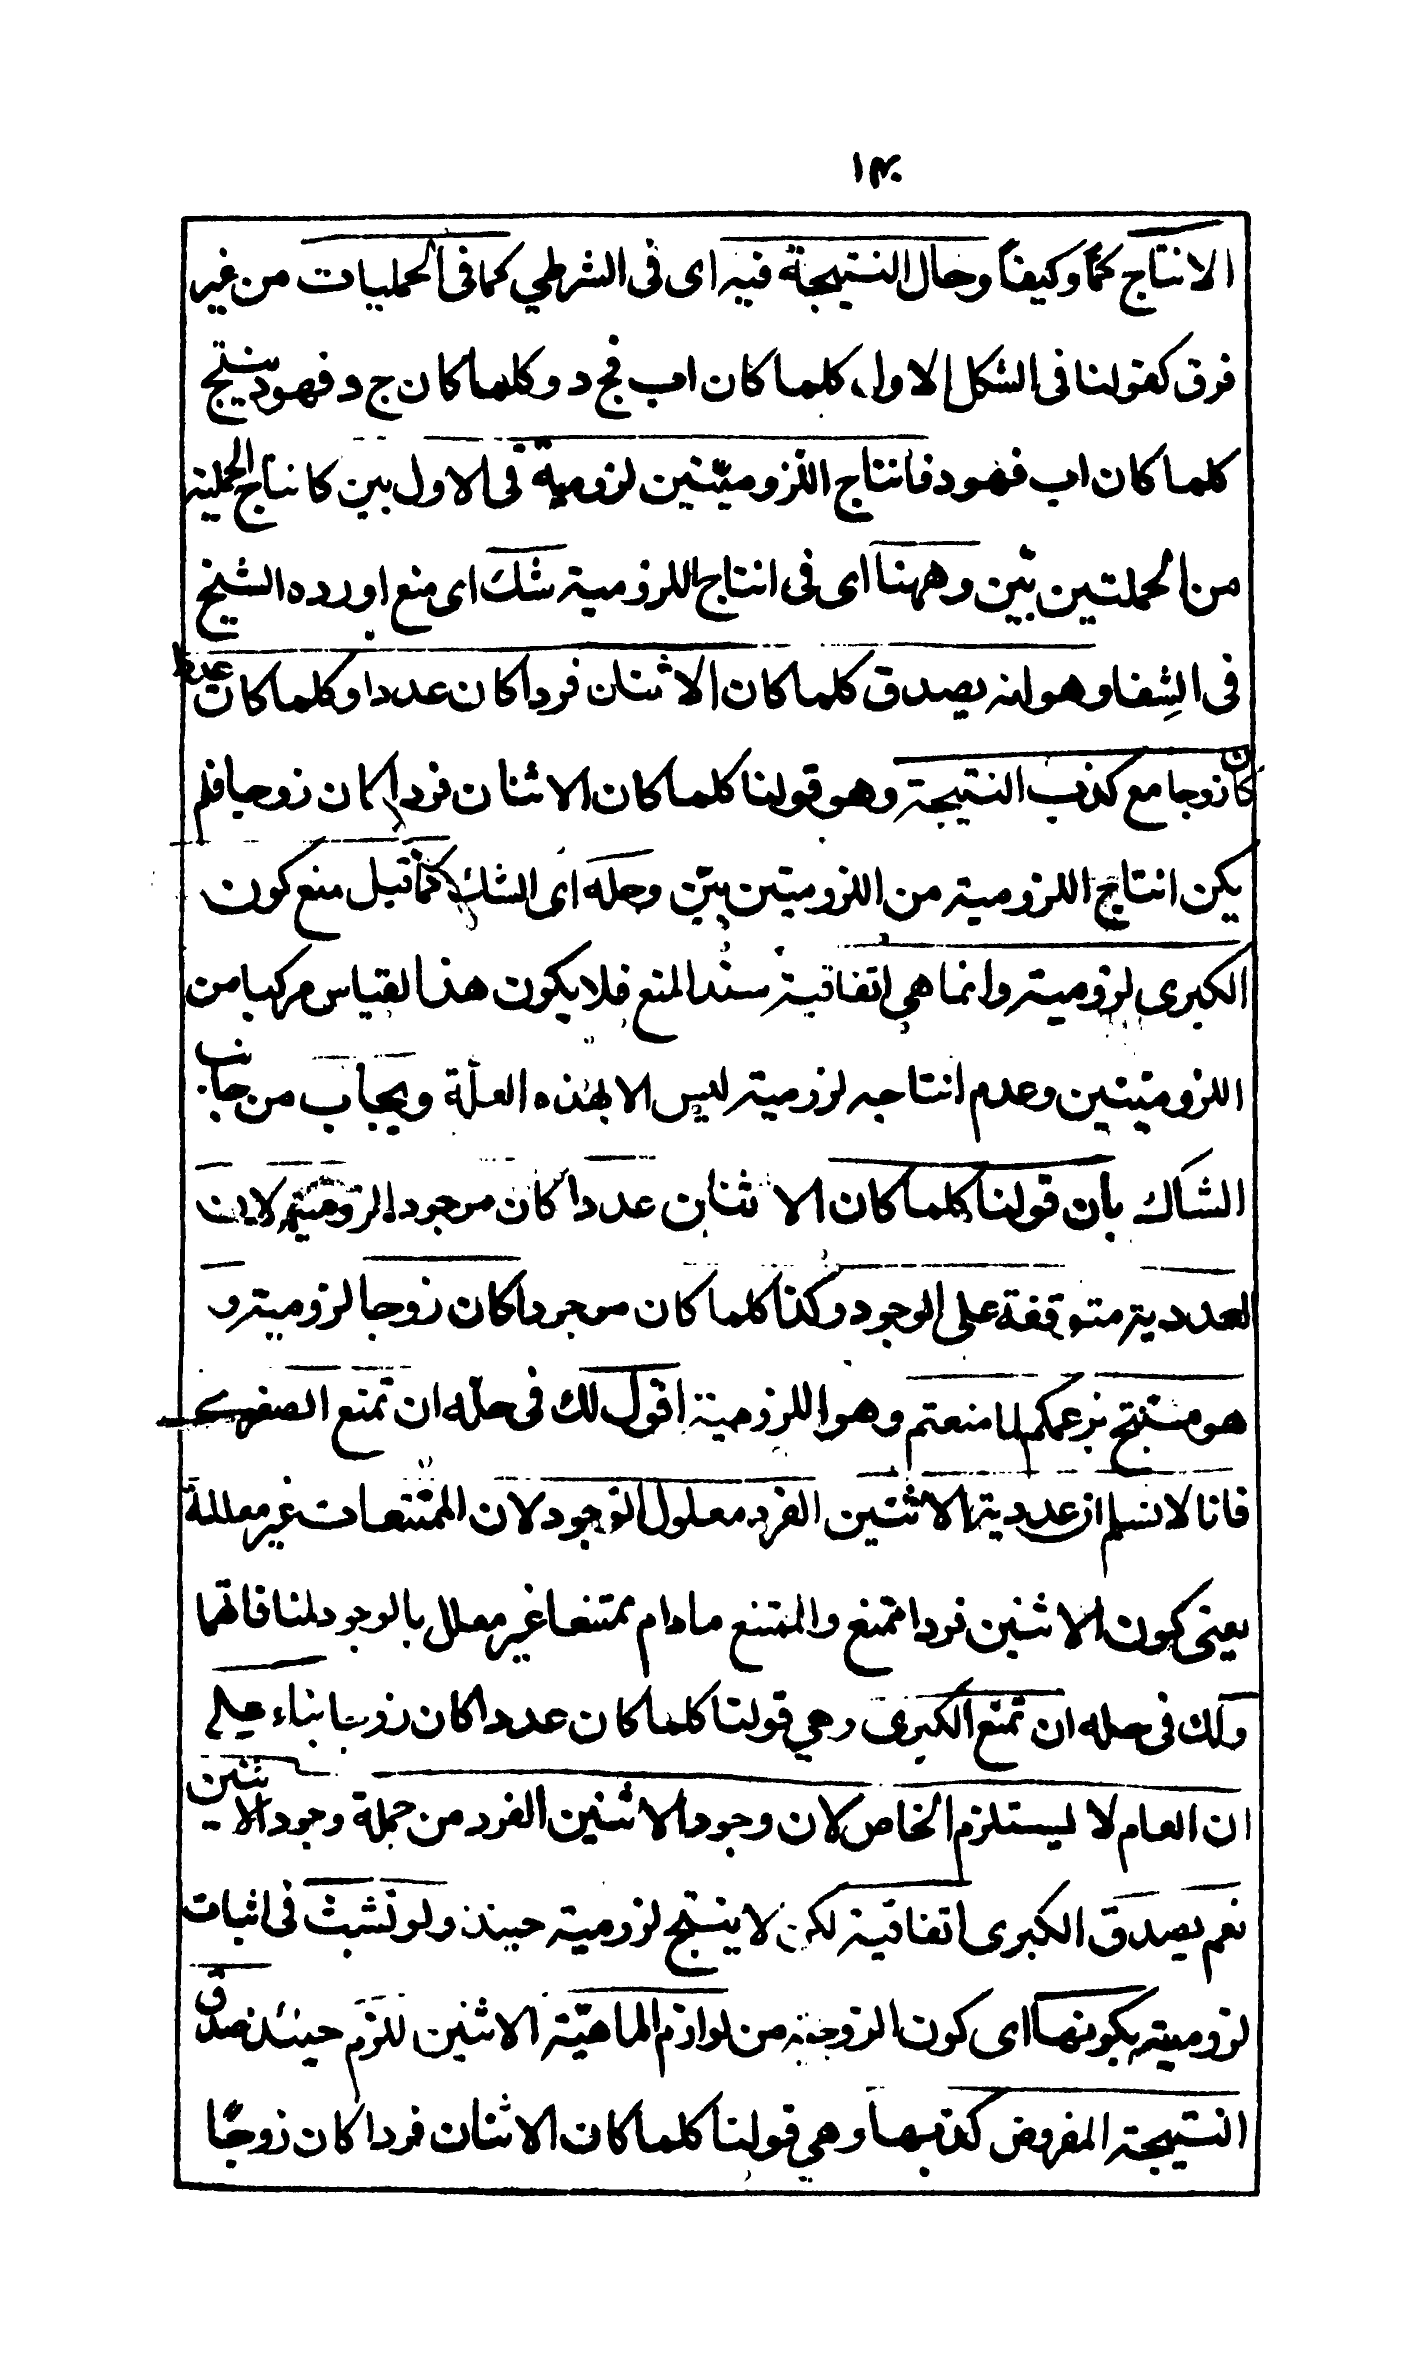 ١٣٠
الانتاج كمًّا وكيفًا وحال النتيجة فيه اى فى الشرطي كما فى الحمليات من غير
فرق كقولنا فى الشكل الاول كلما كان اب فج د وكلما كان ج د فهو د ينتج
كلما كان اب فهو د فانتاج اللزوميّتين لزومية فى الاول بين كانتاج الحملية
من الحملتين بيّن وههنا اى فى انتاج اللزومية شك اى منع اورده الشيخ
فى الشفا وهو انه يصدق كلما كان الاثنان فردا كان عددا وكلما كان عددا
كان زوجا مع كذب النتيجة وهو قولنا كلما كان الاثنان فردا كان زوجا فلم
يكن انتاج اللزومية من اللزوميتين بيّن وحله اى الشك كما قيل منع كون
الكبرى لزومية وانما هى اتفاقية سند المنع فلا يكون هذا القياس مركبا من
اللزوميتين وعدم انتاجه لزومية ليس الا بهذه العلّة ويجاب من جانب
الشاك بأن قولنا كلما كان الاثنان عددا كان موجودا لزومية لان
العددية متوقفة على الوجود وكذا كلما كان موجودا كان زوجا لزومية و
هو منتج بزعمكم لما منعتم وهو اللزومية اقول لك فى حلّه ان تمنع الصغرى
فانا لا نسلم ان عددية الاثنين الفرد معلول الوجود لان الممتنعات غير معللة
يعنى كون الاثنين فردا ممتنع والممتنع مادام ممتنعا غير معلل بالوجود لمنافاتهما
ولك فى حله ان تمنع الكبرى وهي قولنا كلما كان عددا كان زوجا بناء على
ان العام لا يستلزم الخاص لان وجود الاثنين الفرد من جملة وجود الاثنين
نعم يصدق الكبرى اتفاقية لكن لا ينتج لزومية حينئذ ولو تشبث فى اثبات
لزوميته بكونها اى كون الزوجية من لوازم الماهيّة الاثنين للزم حينئذ صدق
النتيجة المفروض كذبها وهي قولنا كلما كان الاثنان فردا كان زوجًا